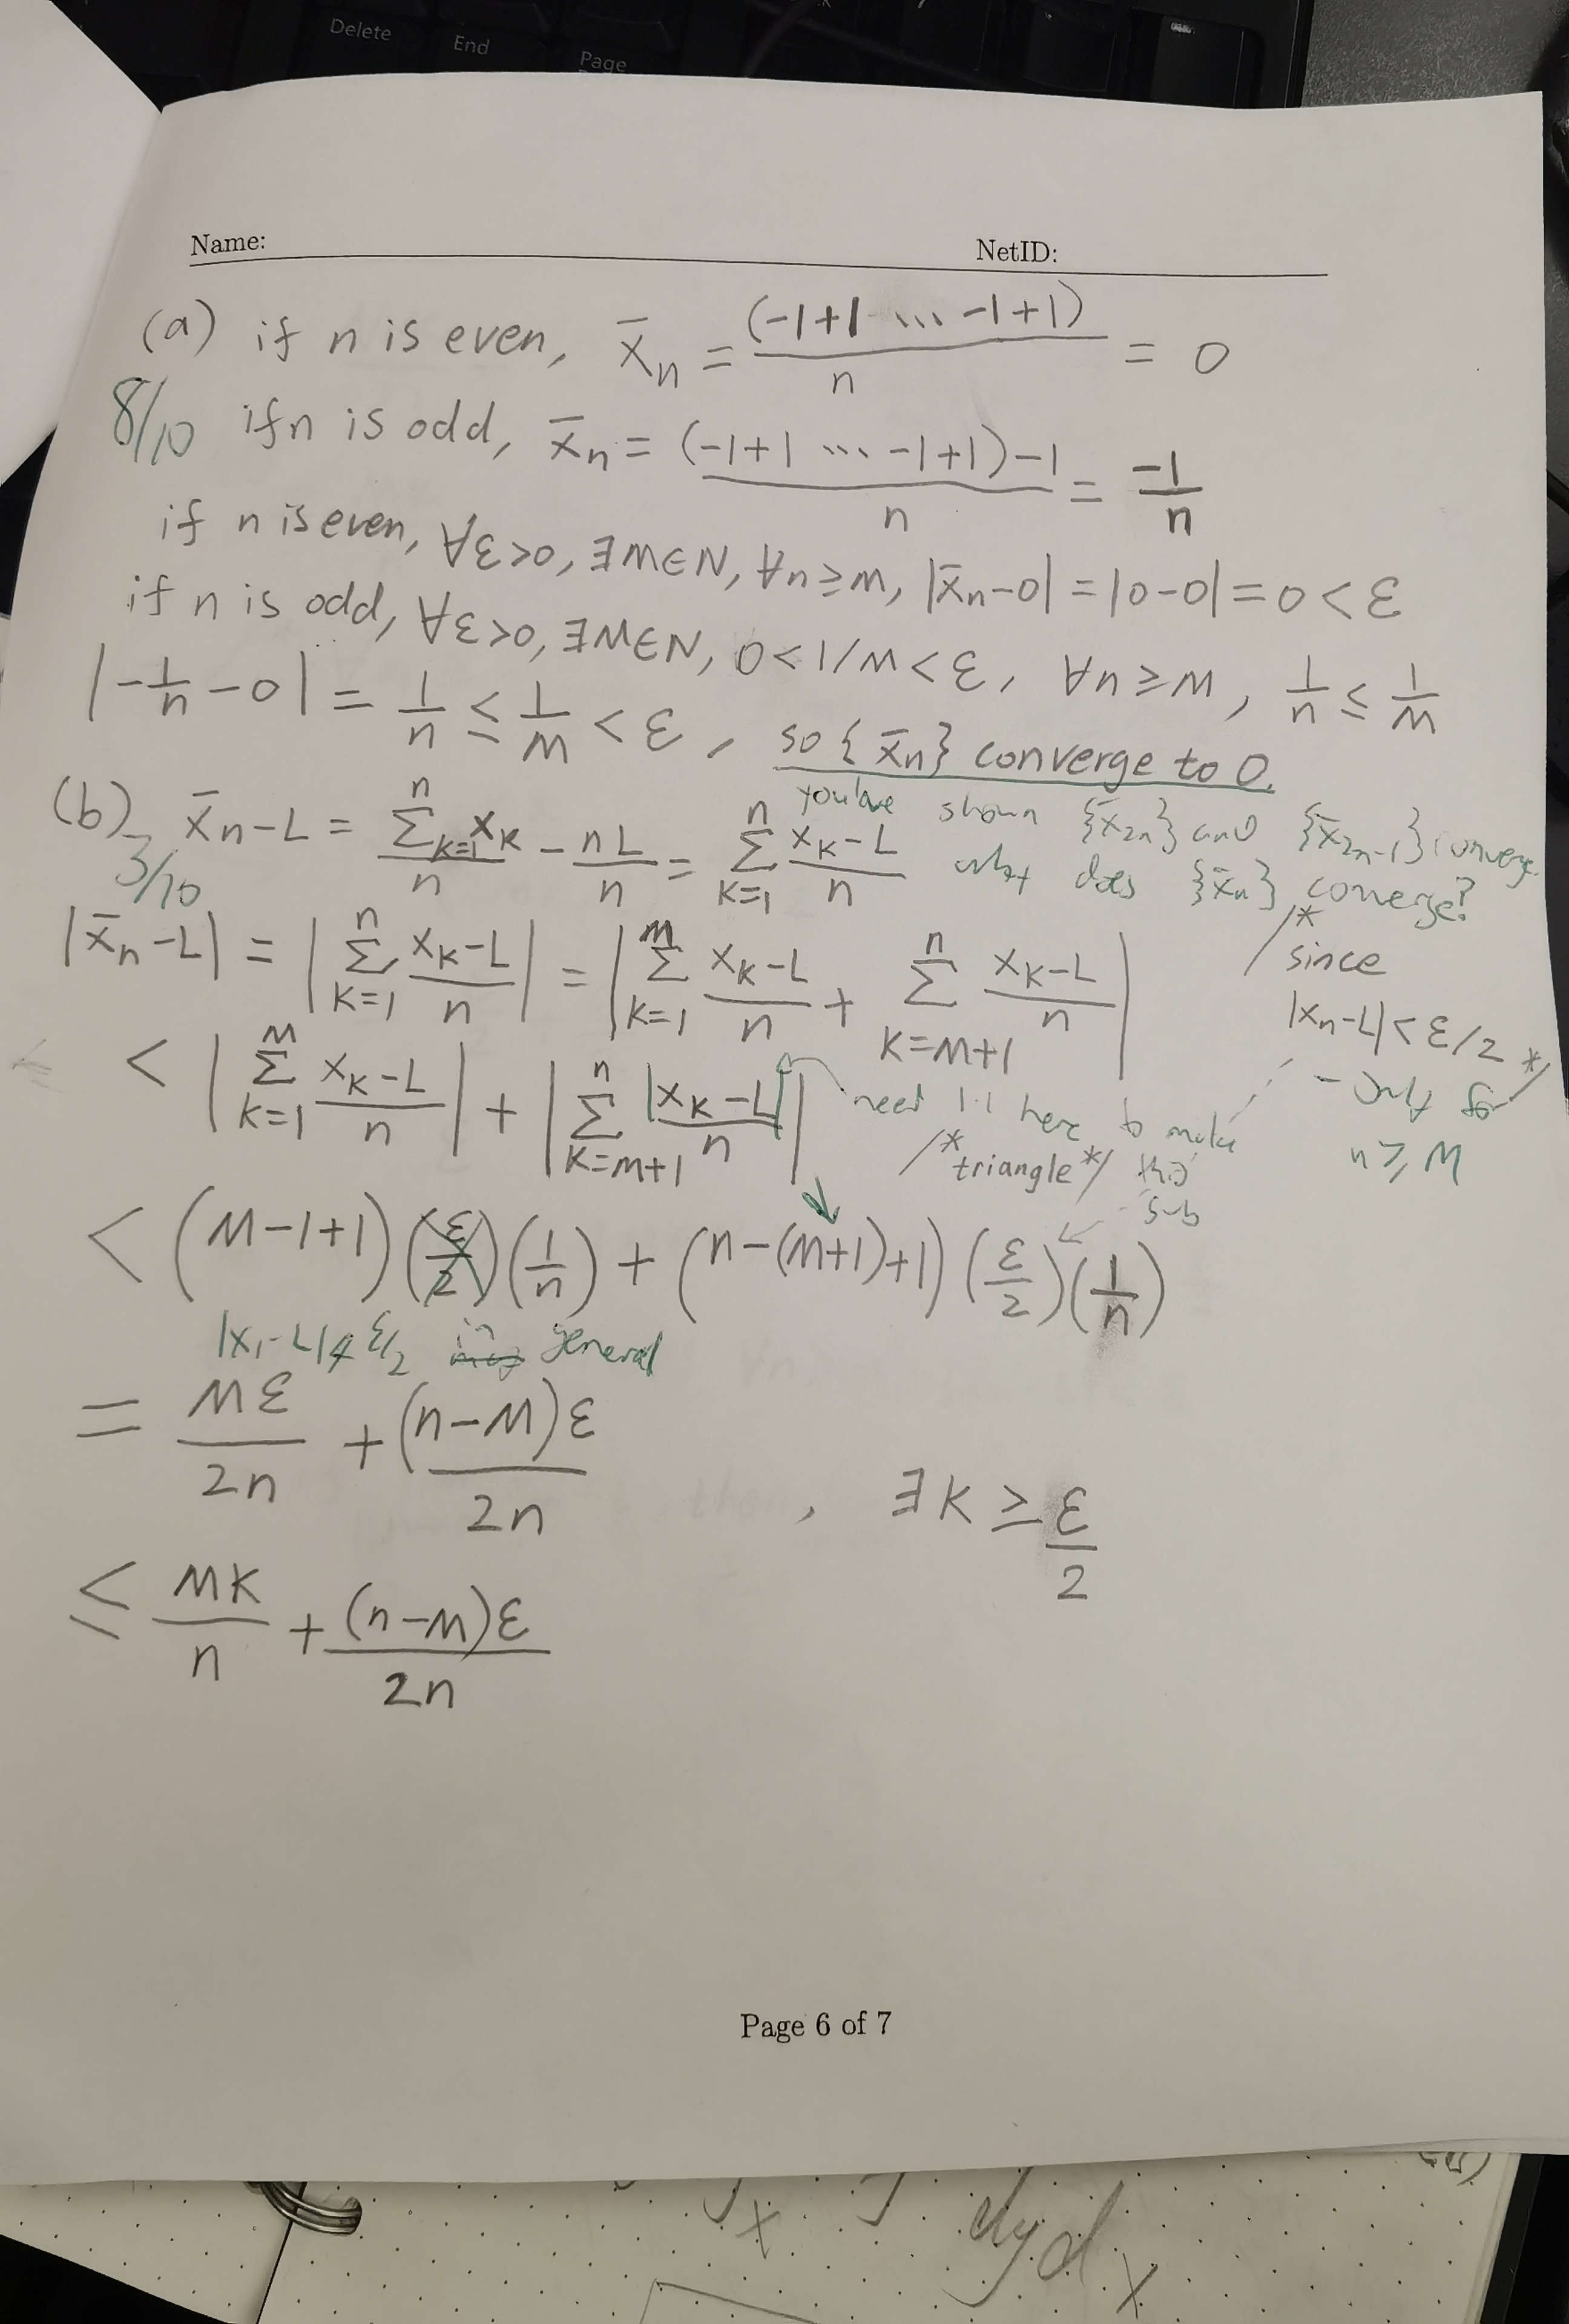 Delete End Page
Name: NetID:
(a) if n is even, x̄n = (-1+1 ... -1+1)/n = 0
8/10
if n is odd, x̄n = (-1+1 ... -1+1)-1/n = -1/n
if n is even, ∀ε>0, ∃M∈N, ∀n≥M, |x̄n-0| = |0-0| = 0 < ε
if n is odd, ∀ε>0, ∃M∈N, 0<1/M<ε, ∀n≥M, 1/n ≤ 1/M
|-1/n - 0| = 1/n ≤ 1/M < ε, so {x̄n} converge to 0.
you've shown {x̄2n} and {x̄2n-1} converge.
(b) x̄n-L = Σ_{k=1}^{n} xk/n - nL/n = Σ_{k=1}^{n} (xk-L)/n
does {x̄n} converge?
3/10
|x̄n-L| = |Σ_{k=1}^{n} (xk-L)/n| = |Σ_{k=1}^{M} (xk-L)/n + Σ_{k=M+1}^{n} (xk-L)/n|
/* since |xn-L| < ε/2 */
- only for n ≥ M
< |Σ_{k=1}^{M} (xk-L)/n| + |Σ_{k=M+1}^{n} |xk-L|/n|
need |·| here to make this sub
/* triangle */
< (M-1+1)(ε/2)(1/n) + (n-(M+1)+1)(ε/2)(1/n)
|x1-L| ≮ ε/2 in general
= Mε/2n + (n-M)ε/2n , ∃K ≥ ε/2
≤ MK/n + (n-M)ε/2n
Page 6 of 7
dydx